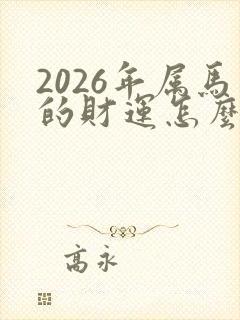 2026年属馬
的財運怎麽
高永